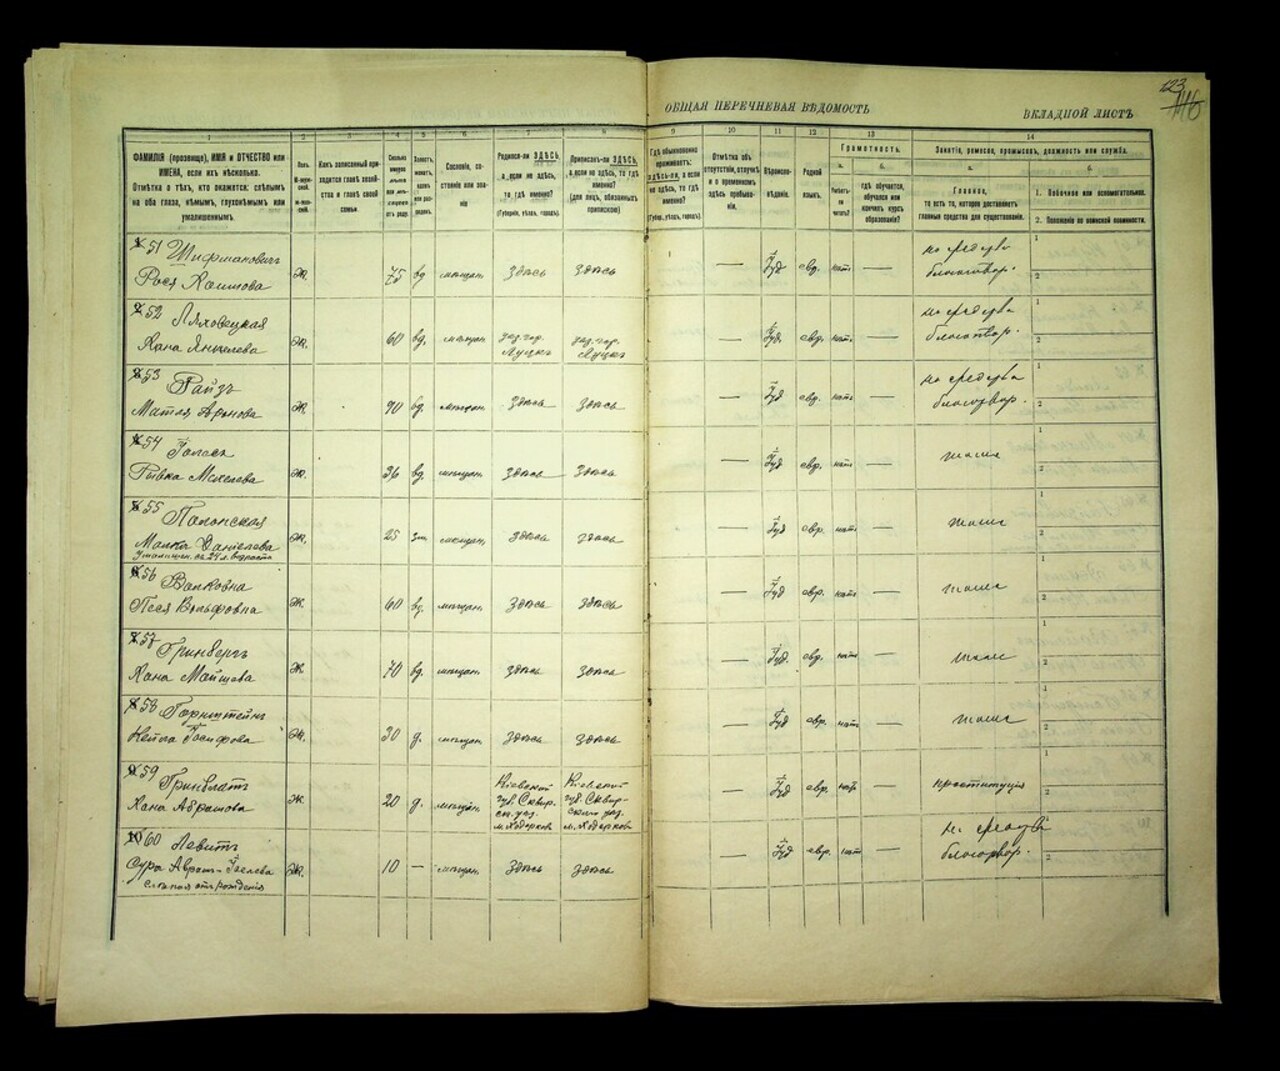 123
146
ОБЩАЯ ПЕРЕЧНЕВАЯ ВѢДОМОСТЬ
ВКЛАДНОЙ ЛИСТЪ
1 2 3 4 5 6 7 8 9 10 11 12 13 14
ФАМИЛІЯ (прозвище), ИМЯ и ОТЧЕСТВО или
ИМЕНА, если ихъ нѣсколько.
Отмѣтка о тѣхъ, кто окажется: слѣпымъ
на оба глаза, нѣмымъ, глухонѣмымъ или
умалишеннымъ.
Полъ.
М-мужской.
Ж-женскій.
Какъ записанный приходится главѣ хозяйства и главѣ своей семьи.
Сословіе, состояніе или званіе
Родился-ли ЗДѢСЬ,
а если не здѣсь,
то гдѣ именно?
(Губернія, уѣздъ, городъ).
Приписанъ-ли ЗДѢСЬ,
а если не здѣсь, то гдѣ
именно?
(для лицъ, обязанныхъ
припискою)
Гдѣ обыкновенно
проживаетъ:
здѣсь-ли, а если
не здѣсь, то гдѣ
именно?
(Губернія, уѣздъ, городъ).
Отмѣтка объ
отсутствіи, отлучкѣ
и о временномъ
здѣсь пребываніи.
Вѣроисповѣданіе.
Родной
языкъ.
Грамотность.
а.
Умѣетъ-ли
читать?
б.
гдѣ обучается,
обучался или
кончилъ курсъ
образованія?
Занятіе, ремесло, промыселъ, должность или служба.
а.
Главное,
то есть то, которое доставляетъ
главныя средства для существованія.
б.
1. Побочное или вспомогательное.
2. Положеніе по воинской повинности.
51 Шифмановичъ
Рося Хаимова Ж. 75 вд. мѣщан. здѣсь здѣсь — Іуд евр. нѣт — на средства благотвор. 1 2
52 Ляховецкая
Хана Янкелева Ж. 60 вд. мѣщан. уѣз. гор. Луцкъ уѣз. гор. Луцкъ — Іуд. евр. нѣт. — на средства благотвор. 1 2
53 Райзъ
Матля Аронова Ж. 90 вд. мѣщан. здѣсь здѣсь — Іуд евр. нѣт — на средства благотвор. 1 2
54
Ривка Ж. 36 вд. мѣщан. здѣсь здѣсь — Іуд евр. нѣт — тоже 2
55 Полонская
Малка Данилева
умалишен. съ 24 л. возраста Ж. 25 мѣщан. здѣсь здѣсь — Іуд евр. нѣт — тоже 1 2
56 Валковна
Песя Вольфовна Ж. 60 вд. мѣщан. здѣсь здѣсь — Іуд евр. нѣт — тоже 1 2
57 Гринбергъ
Хана Ж. 70 вд. мѣщан. здѣсь здѣсь — Іуд. евр. нѣт — тоже 1 2
58 Горнштейнъ
Іосифова Ж. 30 д. мѣщан. здѣсь здѣсь — Іуд евр. нѣт — тоже 1 2
59 Гринблатъ
Хана Абрамова Ж. 20 д. мѣщан. Кіевской губ. Сквир. уѣз. м. Ходорковъ Кіевской губ. Сквирскаго уѣз. м. Ходорковъ — Іуд евр. нѣт — проституція 1 2
60 Левитъ
Сура
слѣпая отъ рожденія Ж. 10 — мѣщан. здѣсь здѣсь — Іуд евр. нѣт — на средства благотвор. 2